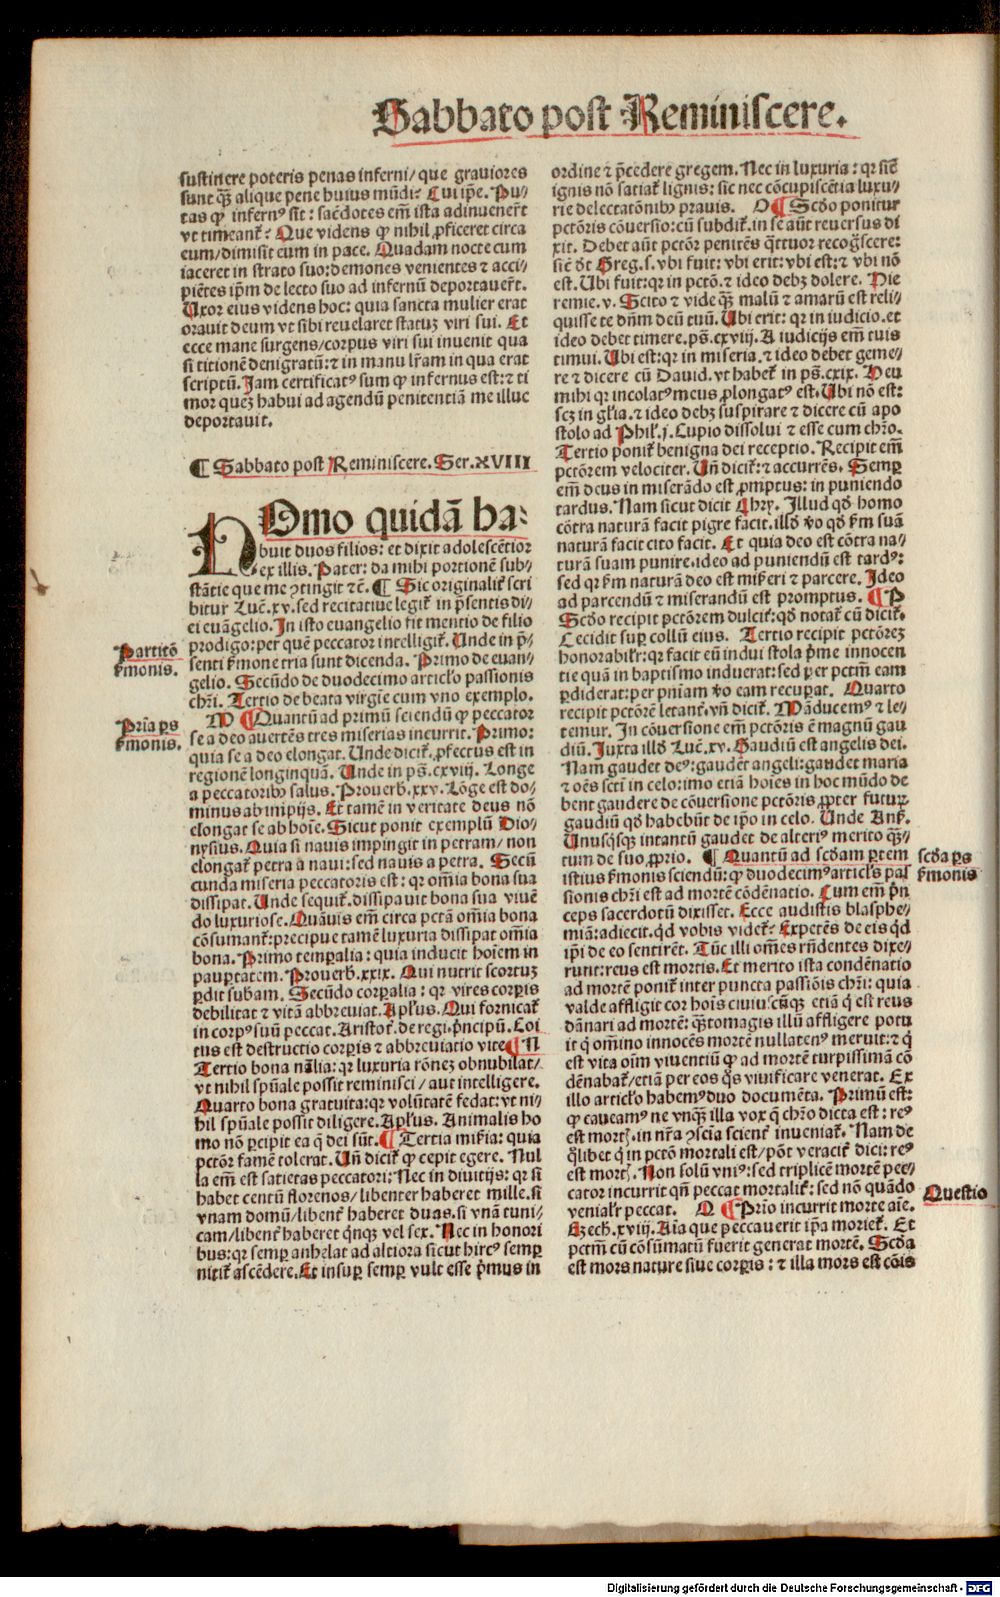 Sabbato post Reminiscere.
sustinere poteris penas inferni/ que grauiores
sunt qȝ̄ alique pene huius mūdi? Cui ip̄e. Pu-
tas ꝙ infernꝰ sit: sac̄dotes em̄ ista adinuener̄t
vt timeant̄? Que videns ꝙ nihil ꝓficeret circa
eum/dimisit eum in pace. Quadam nocte cum
iaceret in strato suo: demones venientes ⁊ acci-
piētes ip̄m de lecto suo ad infernū deportauer̄t.
Uxor eius videns hoc: quia sancta mulier erat
orauit deum vt sibi reuelaret statuȝ viri sui. Et
ecce mane surgens/corpus viri sui inuenit qua
si titionē denigratū: ⁊ in manu lr̄am in qua erat
scriptū. Jam certificatꝰ sum ꝙ infernus est: ⁊ ti
mor queȝ habui ad agendū penitentiā me illuc
deportauit.
¶ Sabbato post Reminiscere. Ser. XVIII
HOmo quidā ha-
buit duos filios: et dixit adolescētior
ex illis. Pater: da mihi portionē sub-
stātie que me ꝯtingit ⁊c̄. ¶ Sic originalit̄ scri
bitur Luc̄. xv. sed recitatiue legit̄ in p̄sentis di-
ei euāgelio. In isto euangelio fit mentio de filio
prodigo: per quē peccator intelligit̄. Unde in p̄-
senti ẜmone tria sunt dicenda. Primo de euan-
gelio. Secūdo de duodecimo articl̓o passionis
chr̄i. Tertio de beata virgīe cum vno exemplo.
Partitō
ẜmonis.
M ¶ Quantū ad primū sciendū ꝙ peccator
se a deo auertēs tres miserias incurrit. Primo:
quia se a deo elongat. Unde dicit̄. ꝓfectus est in
regionē longinquā. Unde in ps̄. cxviij. Longe
a peccatoribꝰ salus. Prouerb. xxv. Lōge est do-
minus ab impijs. Et tamē in veritate deus nō
elongat se ab hoīe. Sicut ponit exemplū Dio-
nysius. Quia si nauis impingit in petram/ non
elongat̄ petra a naui: sed nauis a petra. Secū
cunda miseria peccatoris est: qr om̄ia bona sua
dissipat. Unde sequit̄. dissipauit bona sua viuē
do luxuriose. Quāuis em̄ circa pctā om̄ia bona
cōsumant̄: precipue tamē luxuria dissipat om̄ia
bona. Primo tempalia: quia inducit hoīem in
paupertatem. Prouerb. xxix. Qui nutrit scortuȝ
ꝑdit subam. Secūdo corꝑalia: qr vires corꝑis
debilitat ⁊ vitā abbreuiat. Apl̓us. Qui fornicat̄
in corpꝰ suū peccat. Aristot̄. de regi. p̄ncipū. Coi
tus est destructio corꝑis ⁊ abbreuiatio vite ¶ N
Tertio bona nālia: qr luxuria rōneȝ obnubilat/
vt nihil spūale possit reminisci/ aut intelligere.
Quarto bona gratuita: qr volūtatē fedat: vt ni-
hil spūale possit diligere. Apl̓us. Animalis ho
mo nō ꝑcipit ea q̄ dei sūt. ¶ Tertia mis̓ia: quia
pctōr famē tolerat. Un̄ dicit̄ ꝙ cepit egere. Nul
la em̄ est satietas peccatori: Nec in diuitijs: qr si
habet centū florenos/ libenter haberet mille. si
vnam domū/libent̄ haberet duas. si vnā tuni-
cam/libent̄ haberet q̄nqȝ vel sex. Nec in honori
bus: qr semꝑ anhelat ad altiora sicut hircꝰ semꝑ
nitit̄ ascēdere. Et insuꝑ semꝑ vult esse p̄mus in
Prīa ps
ẜmonis.
ordine ⁊ p̄cedere gregem. Nec in luxuria: qr sic̄
ignis nō satiat̄ lignis: sic nec cōcupiscētia luxu-
rie delectatōnibꝰ prauis. O ¶ Scd̓o ponitur
pctōris cōuersio: cū subdit̄. in se aūt reuersus di
xit. Debet aūt pctōr penitēs q̄ttuor recog̓scere:
sic̄ d̓t Greg. s. vbi fuit: vbi erit: vbi est: ⁊ vbi nō
est. Ubi fuit: qr in pctō. ⁊ ideo debȝ dolere. Hie
remie. v. Scito ⁊ vide qȝ̄ malū ⁊ amarū est reli-
quisse te dn̄m deū tuū. Ubi erit: qr in iudicio. et
ideo debet timere. ps̄. cxviij. A iudicijs em̄ tuis
timui. Ubi est: qr in miseria. ⁊ ideo debet geme-
re ⁊ dicere cū Dauid. vt habet̄ in ps̄. cxix. Heu
mihi qr incolatꝰ meus ꝓlongatꝰ est. Ubi nō est:
scȝ in gl̓ia. ⁊ ideo debȝ suspirare ⁊ dicere cū apo
stolo ad Phil̓. j. Cupio dissolui ⁊ esse cum chr̄o.
Tertio ponit̄ benigna dei receptio. Recipit em̄
pctōrem velociter. Un̄ dicit̄: ⁊ accurrēs. Semꝑ
em̄ deus in miserādo est ꝓmptus: in puniendo
tardus. Nam sicut dicit Chry. Illud qd̓ homo
cōtra naturā facit pigre facit. illd̓ v̓o qd̓ ẜm suā
naturā facit cito facit. Et quia deo est cōtra na-
turā suam punire. ideo ad puniendū est tardꝰ:
sed qr ẜm naturā deo est mis̓eri ⁊ parcere. Ideo
ad parcendū ⁊ miserandū est promptus. ¶ P
Scd̓o recipit pctōrem dulcit̄: qd̓ notat̄ cū dicit̄.
Cecidit suꝑ collū eius. Tertio recipit pctōreȝ
honorabilr̄: qr facit eū indui stola p̄me innocen
tie quā in baptismo induerat: sed per pctm̄ eam
ꝑdiderat: per pn̄iam v̓o eam recuꝑat. Quarto
recipit pctōrē letant̄. vn̄ dicit̄. Māducemꝰ ⁊ le-
temur. In cōuersione em̄ pctōris ē magnū gau
diū. Juxta illd̓ Luc̄. xv. Gaudiū est angelis dei.
Nam gaudet deꝰ: gaudēt angeli: gaudet maria
⁊ oēs sctī in celo: imo etiā hoīes in hoc mūdo de
bent gaudere de cōuersione pctōris ꝓpter futuꝝ
gaudiū qd̓ habebūt de ip̄o in celo. Unde Ans̓.
Unusq̄sqȝ intantū gaudet de alteriꝰ merito qȝ̄-
tum de suo ꝓprio. ¶ Quantū ad scd̓am ꝑtem
istius ẜmonis sciendū: ꝙ duodecimꝰ articl̓s pas
sionis chr̄i est ad mortē cōdēnatio. Cum em̄ p̄n
ceps sacerdotū dixisset. Ecce audistis blasphe-
miā: adiecit. qd vobis videt̄? Expetēs de eis qd
ip̄i de eo sentirēt. Tūc illi om̄es rn̄dentes dixe-
runt: reus est mortis. Et merito ista condēnatio
ad mortē ponit̄ inter puncta passiōis chr̄i: quia
valde affligit cor hoīs cuiuscūqȝ etiā q̄ est reus
dānari ad mortē: qȝ̄tomagis illū affligere potu
it q̄ om̄ino innocēs mortē nullatenꝰ meruit: ⁊ q̄
est vita oīm viuentiū ꝙ ad mortē turpissimā cō
dēnabat̄/etiā per eos q̄s viuificare venerat. Ex
illo articl̓o habemꝰ duo documēta. Primū est:
ꝙ caueamꝰ ne vnqȝ̄ illa vox q̄ chr̄o dicta est: reꝰ
est mortꝭ. in nr̄a ꝯscīa scient̄ inueniat̄. Nam de
q̄libet q̄ in pctō mortali est/pōt veracit̄ dici: reꝰ
est mortꝭ. Non solū vniꝰ: sed triplicē mortē pec-
cator incurrit qn̄ peccat mortalit̄: sed nō quādo
venialr̄ peccat. Q ¶ Prīo incurrit morte aīe.
Ezech. xviij. Aīa que peccauerit ip̄a moriet̄. Et
pctm̄ cū cōsumatū fuerit generat mortē. Scd̓a
est mors nature siue corꝑis: ⁊ illa mors est cōis
scd̓a ps
ẜmonis
Questio
Digitalisierung gefördert durch die Deutsche Forschungsgemeinschaft - DFG